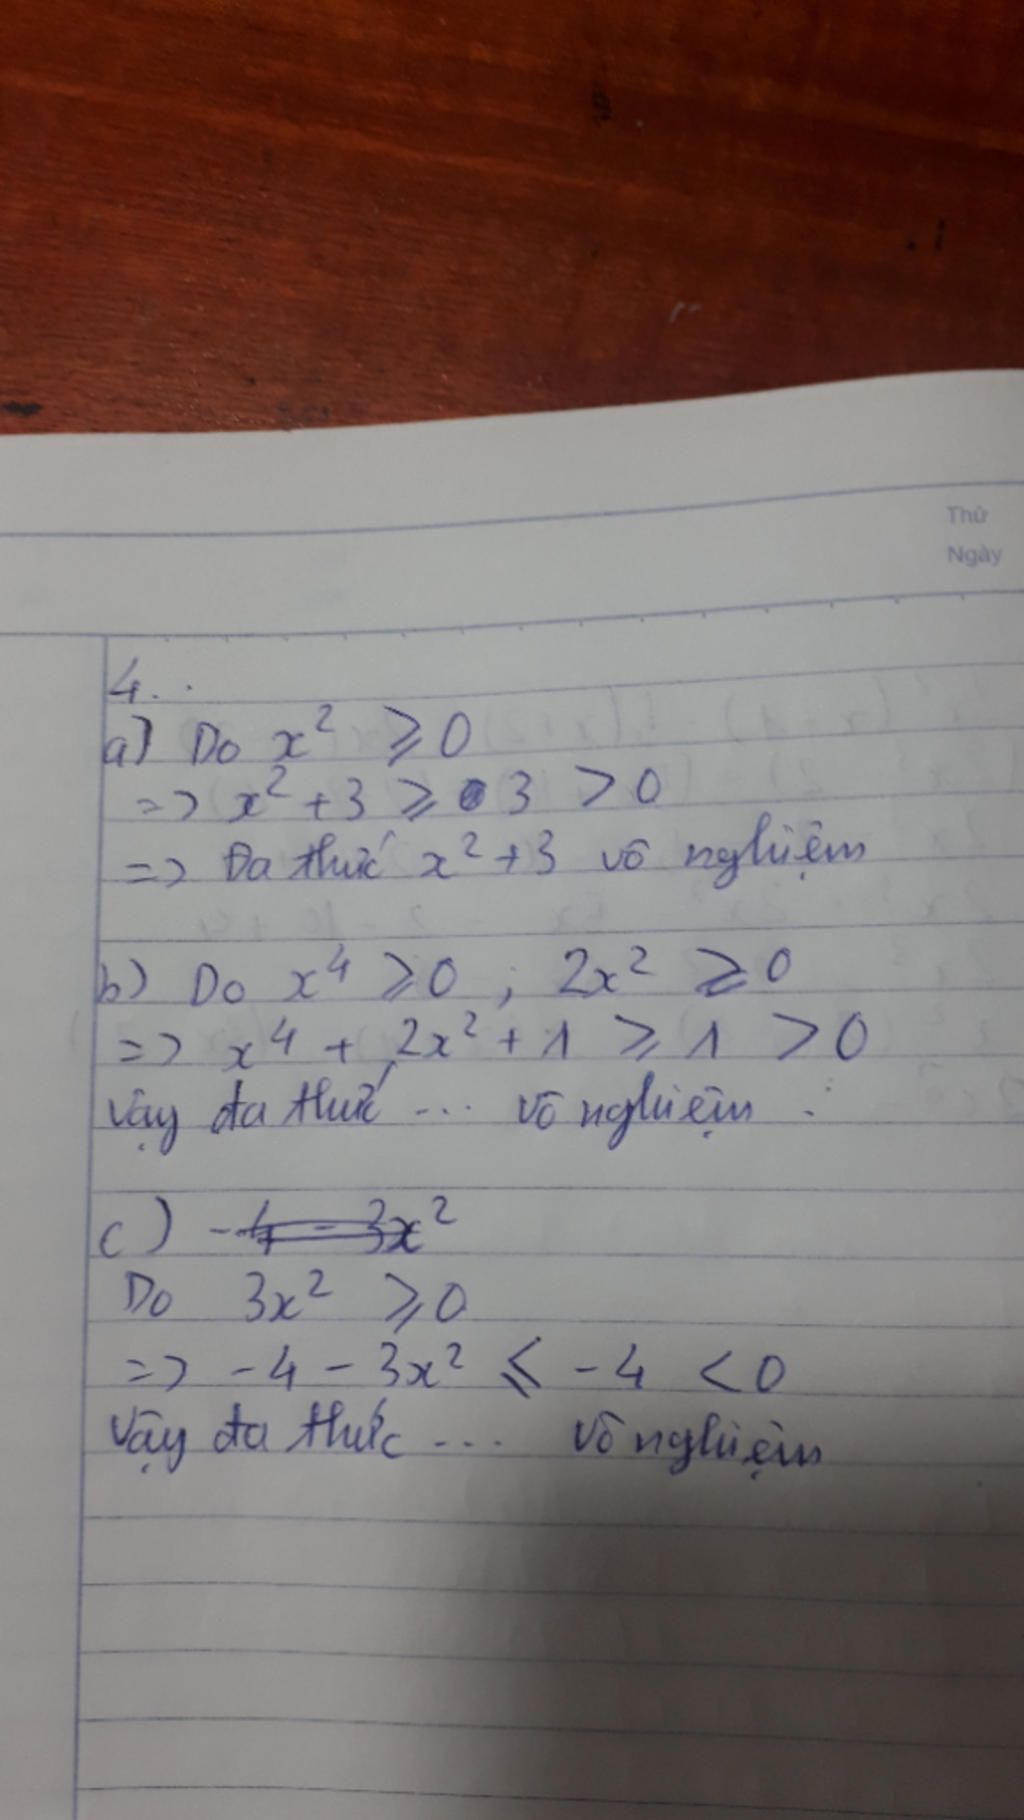 Thứ
Ngày
4..
a) Do x² ⩾ 0
=> x² + 3 ⩾ 3 > 0
=> Đa thức x² + 3 vô nghiệm
b) Do x⁴ ⩾ 0 ; 2x² ⩾ 0
=> x⁴ + 2x² + 1 ⩾ 1 > 0
Vậy đa thức ... vô nghiệm .
c) -4 - 3x²
Do 3x² ⩾ 0
=> -4 - 3x² ⩽ -4 < 0
Vậy đa thức ... vô nghiệm